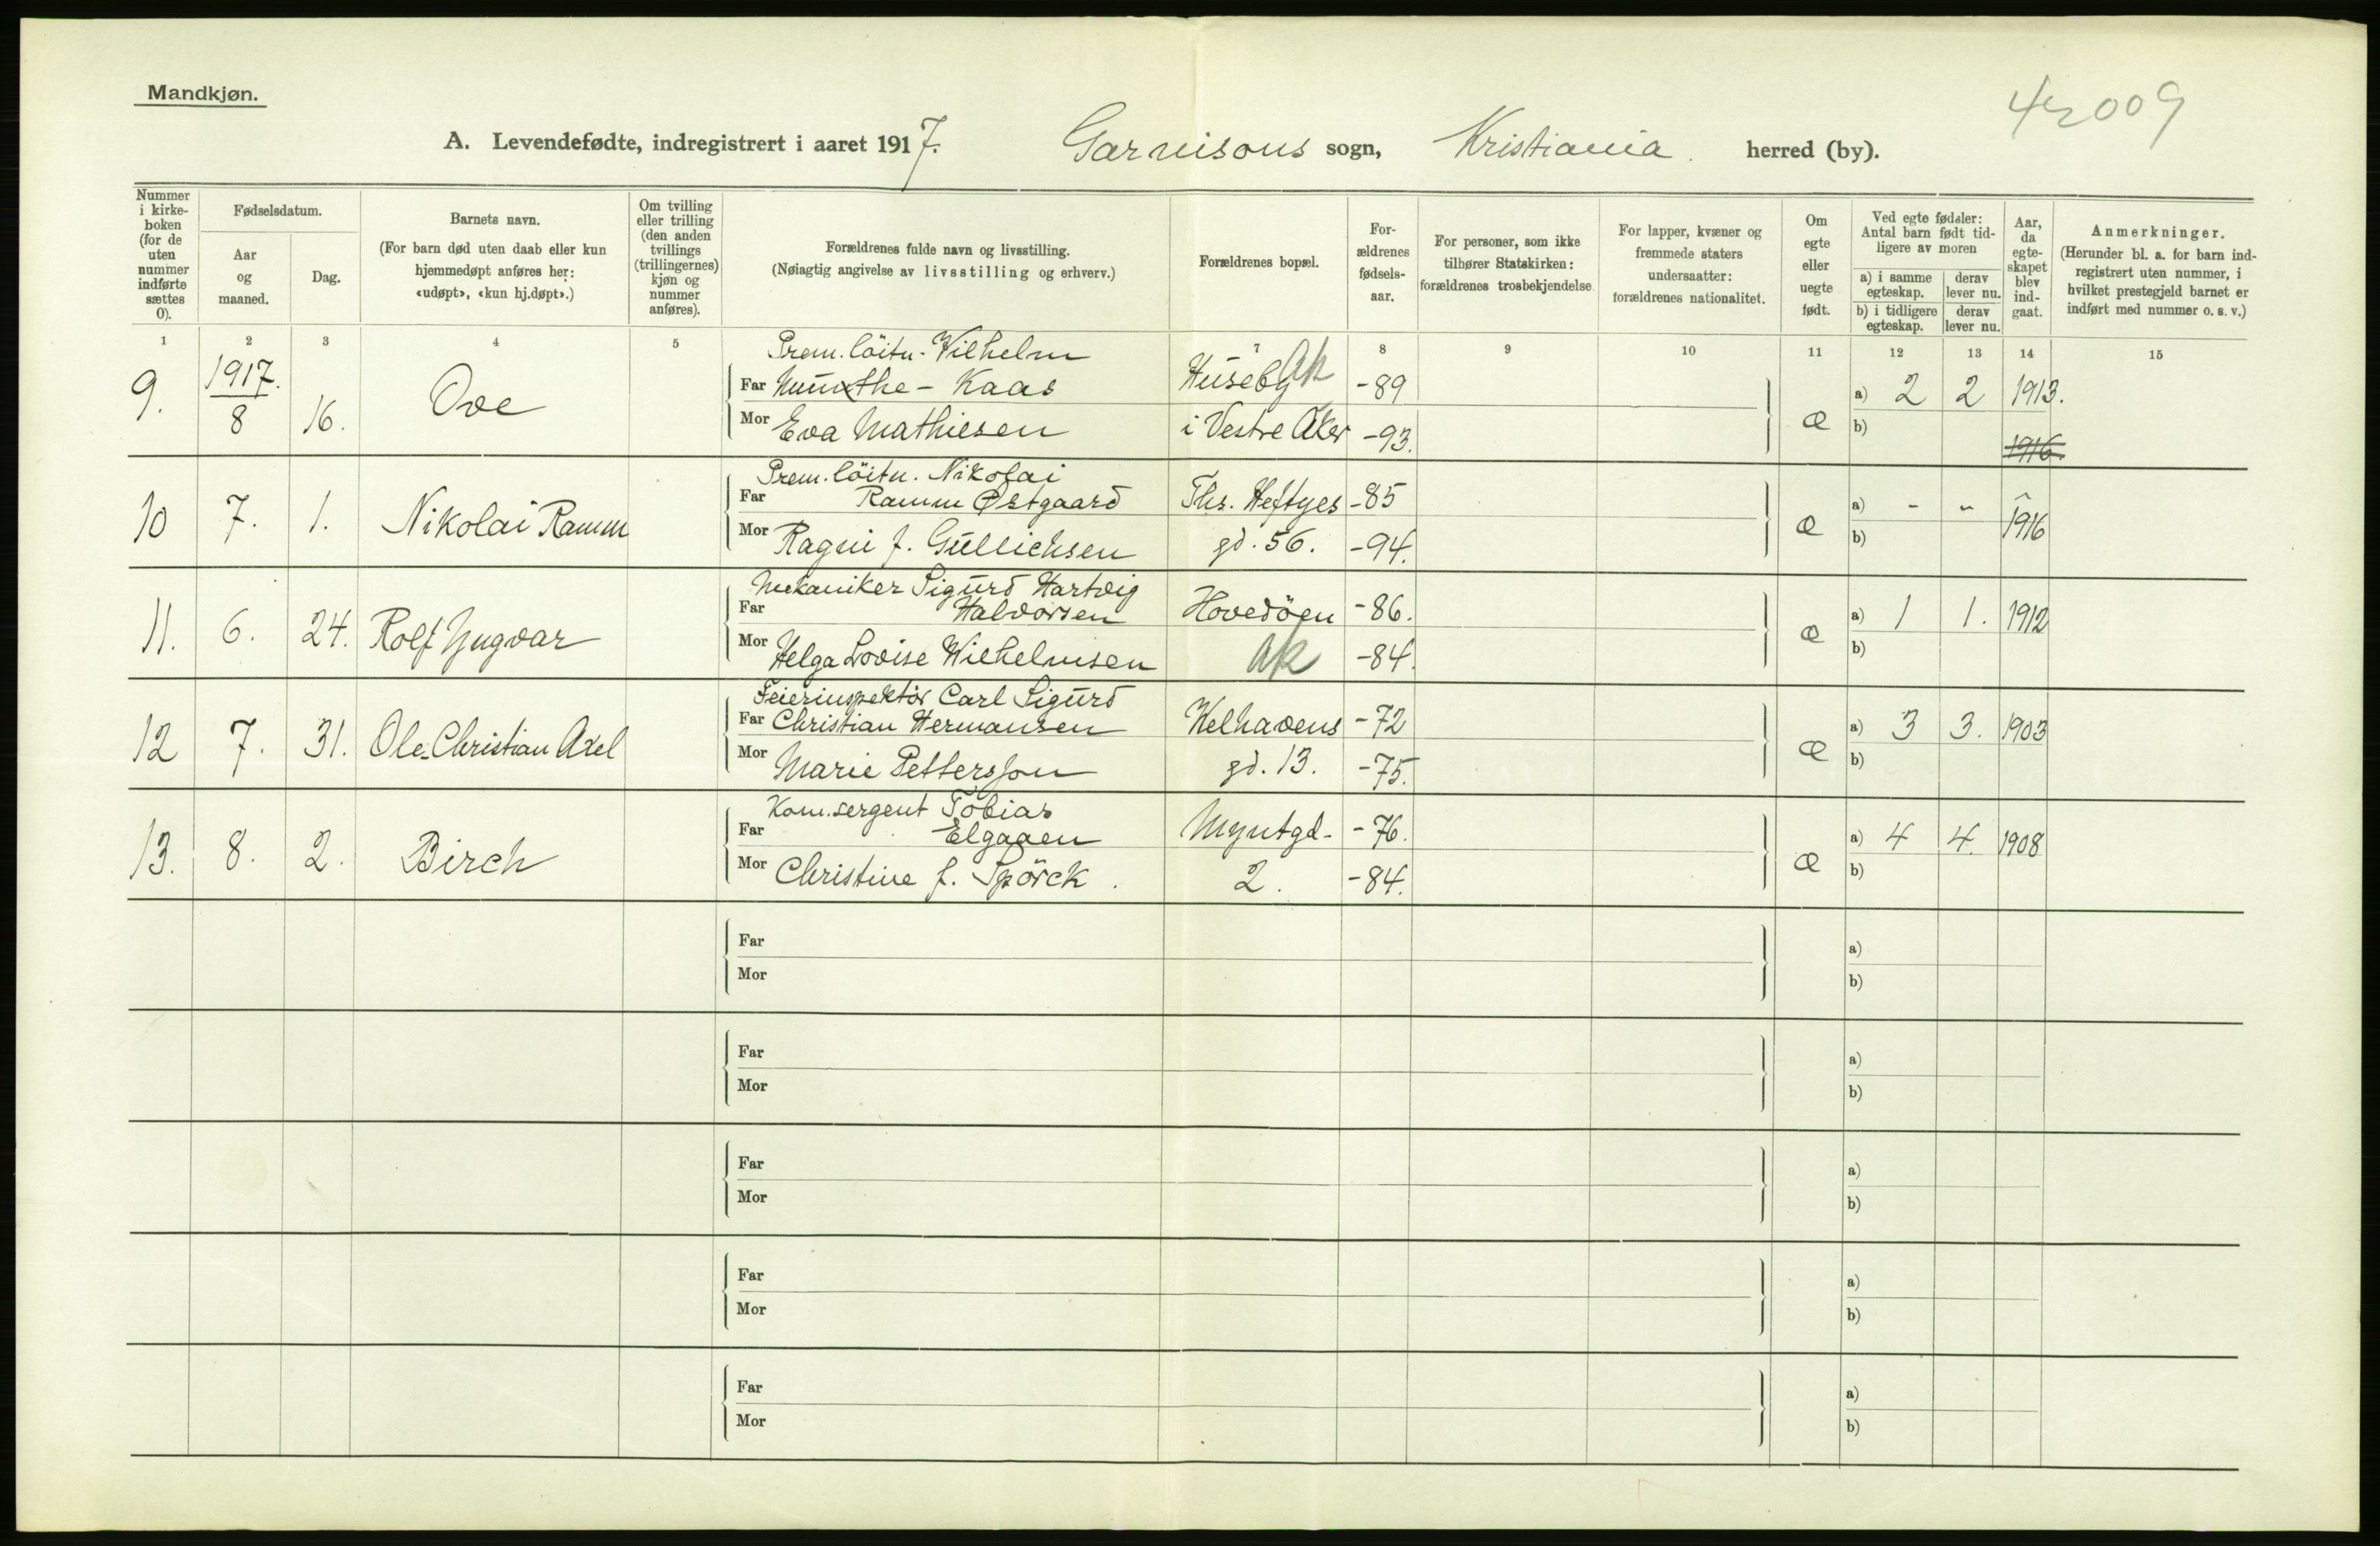 Mandkjøn.
42009
A. Levendefødte, indregistrert i aaret 1917. Garnisons sogn, Kristiania herred (by).
Nummer i kirke-boken (for de uten nummer indførte sættes 0).
Fødselsdatum.
Aar og maaned.
Dag.
Barnets navn.
(For barn død uten daab eller kun hjemmedøpt anføres her: «udøpt», «kun hj.døpt».)
Om tvilling eller trilling (den anden tvillings (trillingernes) kjøn og nummer anføres).
Forældrenes fulde navn og livsstilling.
(Nøiagtig angivelse av livsstilling og erhverv.)
Forældrenes bopæl.
For-ældrenes fødsels-aar.
For personer, som ikke tilhører Statskirken: forældrenes trosbekjendelse.
For lapper, kvæner og fremmede staters undersaatter: forældrenes nationalitet.
Om egte eller uegte født.
Ved egte fødsler: Antal barn født tid-ligere av moren
a) i samme egteskap. derav lever nu.
b) i tidligere egteskap. derav lever nu.
Aar, da egte-skapet blev ind-gaat.
Anmerkninger.
(Herunder bl. a. for barn ind-registrert uten nummer, i hvilket prestegjeld barnet er indført med nummer o. s. v.)
1 2 3 4 5 7 8 9 10 11 12 13 14 15
Prem.löitn. Wilhelm
9. 1917. 8 16. Ove Far Munthe-Kaas Huseby Ak -89 æ a) 2 2 1913.
Mor Eva Mathiesen i Vestre Aker -93. b) 1916.
Prem.löitn. Nikolai
10 7. 1. Nikolai Ramm Far Ramm Østgaard Ths. Heftyes -85 æ a) - - 1916
Mor Ragni f. Gullichsen gd. 56. -94. b)
Mekaniker Sigurd Hartvig
11. 6. 24. Rolf Yngvar Far Halvorsen Hovedöen -86. æ a) 1 1. 1912
Mor Helga Lovise Wilhelmsen Ak -84. b)
Feierinspektör Carl Sigurd
12 7. 31. Ole-Christian Axel Far Christian Hermansen Welhavens -72 æ a) 3 3. 1903
Mor Marie Pettersson gd. 13. -75. b)
Kom.sergent Tobias
13. 8. 2. Birch Far Elgaaen Myntgd- -76. æ a) 4 4. 1908
Mor Christine f. Spörck. 2. -84. b)
Far a)
Mor b)
Far a)
Mor b)
Far a)
Mor b)
Far a)
Mor b)
Far a)
Mor b)